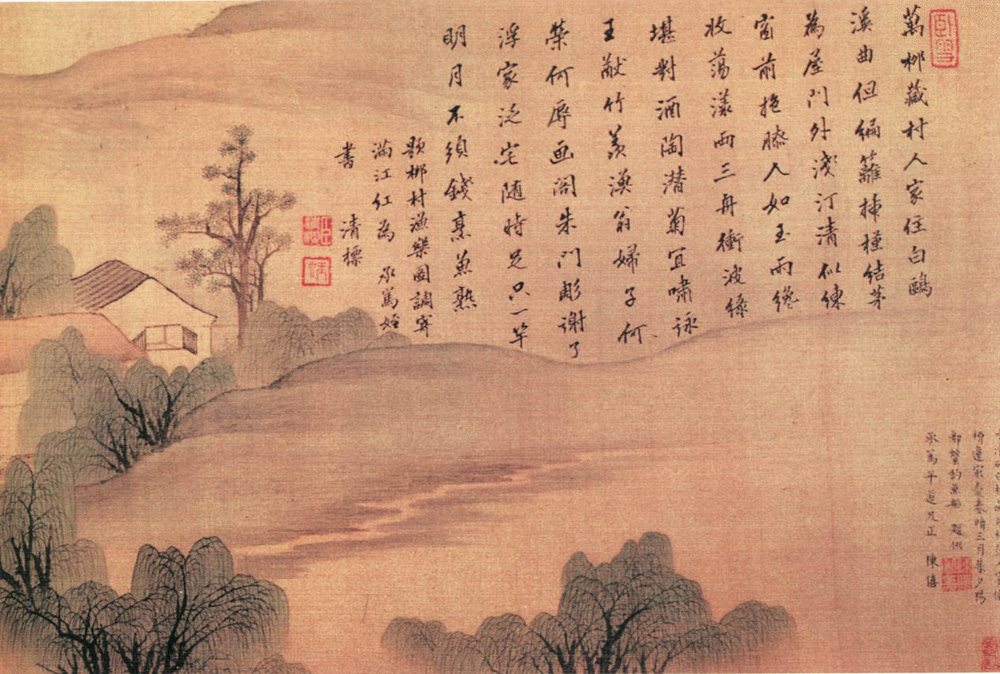 萬柳藏村人家住白鷗
溪曲但編籬揷槿結茅
為屋門外淺汀清似練
窗前抱膝人如玉雨纔
收蕩漾兩三舟衝波綠
堪對酒陶潛菊宜嘯詠
王猷竹羨漁翁婦子何
榮何辱畫閣朱門彫謝了
浮家泛宅隨時足只一竿
明月不須錢烹魚熟
題柳村漁樂圖調寄
滿江紅為 承篤姪
書 清標
三月 夕陽
都聚釣魚船 題似
承篤年道兄正 陳僖